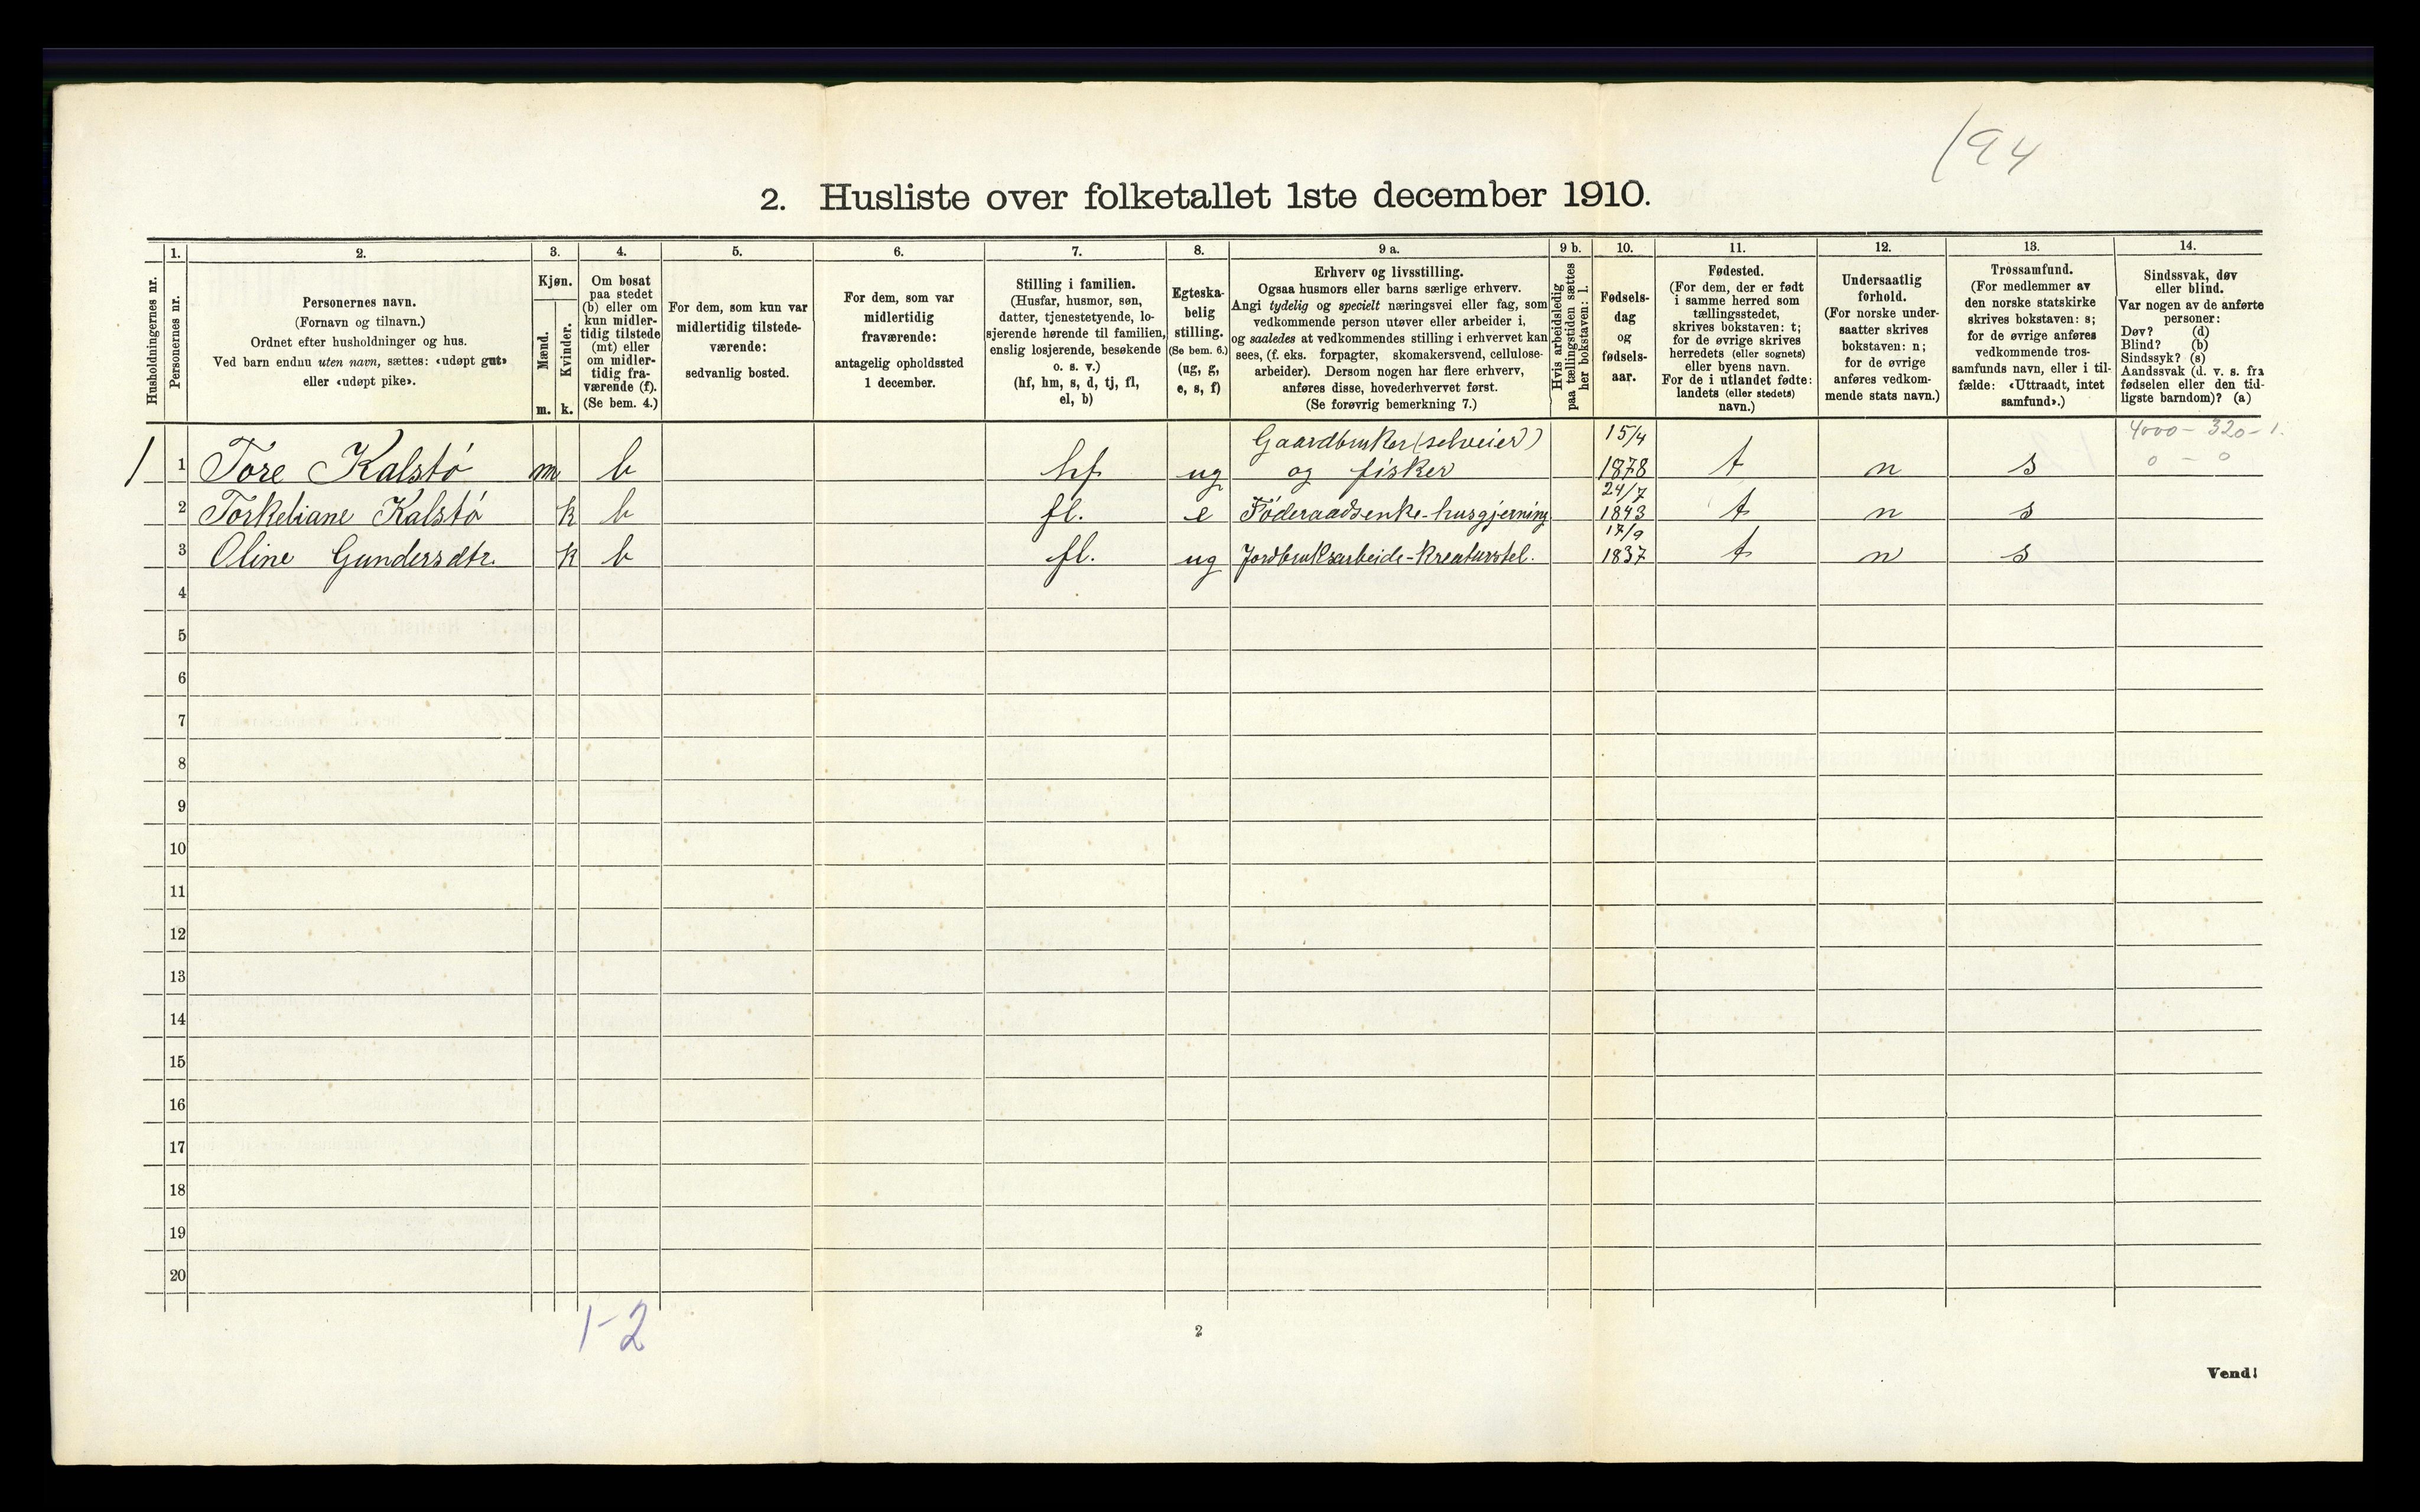 194
2. Husliste over folketallet 1ste december 1910.
Husholdningernes nr.
1.
Personernes nr.
2.
Personernes navn.
(Fornavn og tilnavn.)
Ordnet efter husholdninger og hus.
Ved barn endnu uten navn, sættes: «udøpt gut»
eller «udøpt pike».
3.
Kjøn.
Mænd.
Kvinder.
m. k.
4.
Om bosat
paa stedet
(b) eller om
kun midler-
tidig tilstede
(mt) eller
om midler-
tidig fra-
værende (f).
(Se bem. 4.)
5.
For dem, som kun var
midlertidig tilstede-
værende:
sedvanlig bosted.
6.
For dem, som var
midlertidig
fraværende:
antagelig opholdssted
1 december.
7.
Stilling i familien.
(Husfar, husmor, søn,
datter, tjenestetyende, lo-
sjerende hørende til familien,
enslig losjerende, besøkende
o. s. v.)
(hf, hm, s, d, tj, fl,
el, b)
8.
Egteska-
belig
stilling.
(Se bem. 6.)
(ug, g,
e, s, f)
9 a.
Erhverv og livsstilling.
Ogsaa husmors eller barns særlige erhverv.
Angi tydelig og specielt næringsvei eller fag, som
vedkommende person utøver eller arbeider i,
og saaledes at vedkommendes stilling i erhvervet kan
sees, (f. eks. forpagter, skomakersvend, cellulose-
arbeider). Dersom nogen har flere erhverv,
anføres disse, hovederhvervet først.
(Se forøvrig bemerkning 7.)
9 b.
Hvis arbeidsledig
paa tællingstiden sættes
her bokstaven: l.
10.
Fødsels-
dag
og
fødsels-
aar.
11.
Fødested.
(For dem, der er født
i samme herred som
tællingsstedet,
skrives bokstaven: t;
for de øvrige skrives
herredets (eller sognets)
eller byens navn.
For de i utlandet fødte:
landets (eller stedets)
navn.)
12.
Undersaatlig
forhold.
(For norske under-
saatter skrives
bokstaven: n;
for de øvrige
anføres vedkom-
mende stats navn.)
13.
Trossamfund.
(For medlemmer av
den norske statskirke
skrives bokstaven: s;
for de øvrige anføres
vedkommende tros-
samfunds navn, eller i til-
fælde: «Uttraadt, intet
samfund».)
14.
Sindssvak, døv
eller blind.
Var nogen av de anførte
personer:
Døv? (d)
Blind? (b)
Sindssyk? (s)
Aandssvak (d. v. s. fra
fødselen eller den tid-
ligste barndom)? (a)
Gaardbruker (selveier) 15/4 4000 - 320 - 1.
1 1 Tore Kalstø m b hf ug og fisker 1878 t n s 0 - 0
24/7
2 Torkeliane Kalstø k b fl. e Føderaadsenke-husgjerning 1843 t n s
17/9
3 Oline Gundersdtr. k b fl. ug Jordbruksarbeide-kreaturstel. 1837 t n s
4
5
6
7
8
9
10
11
12
13
14
15
16
17
18
19
20
1-2
2
Vend!